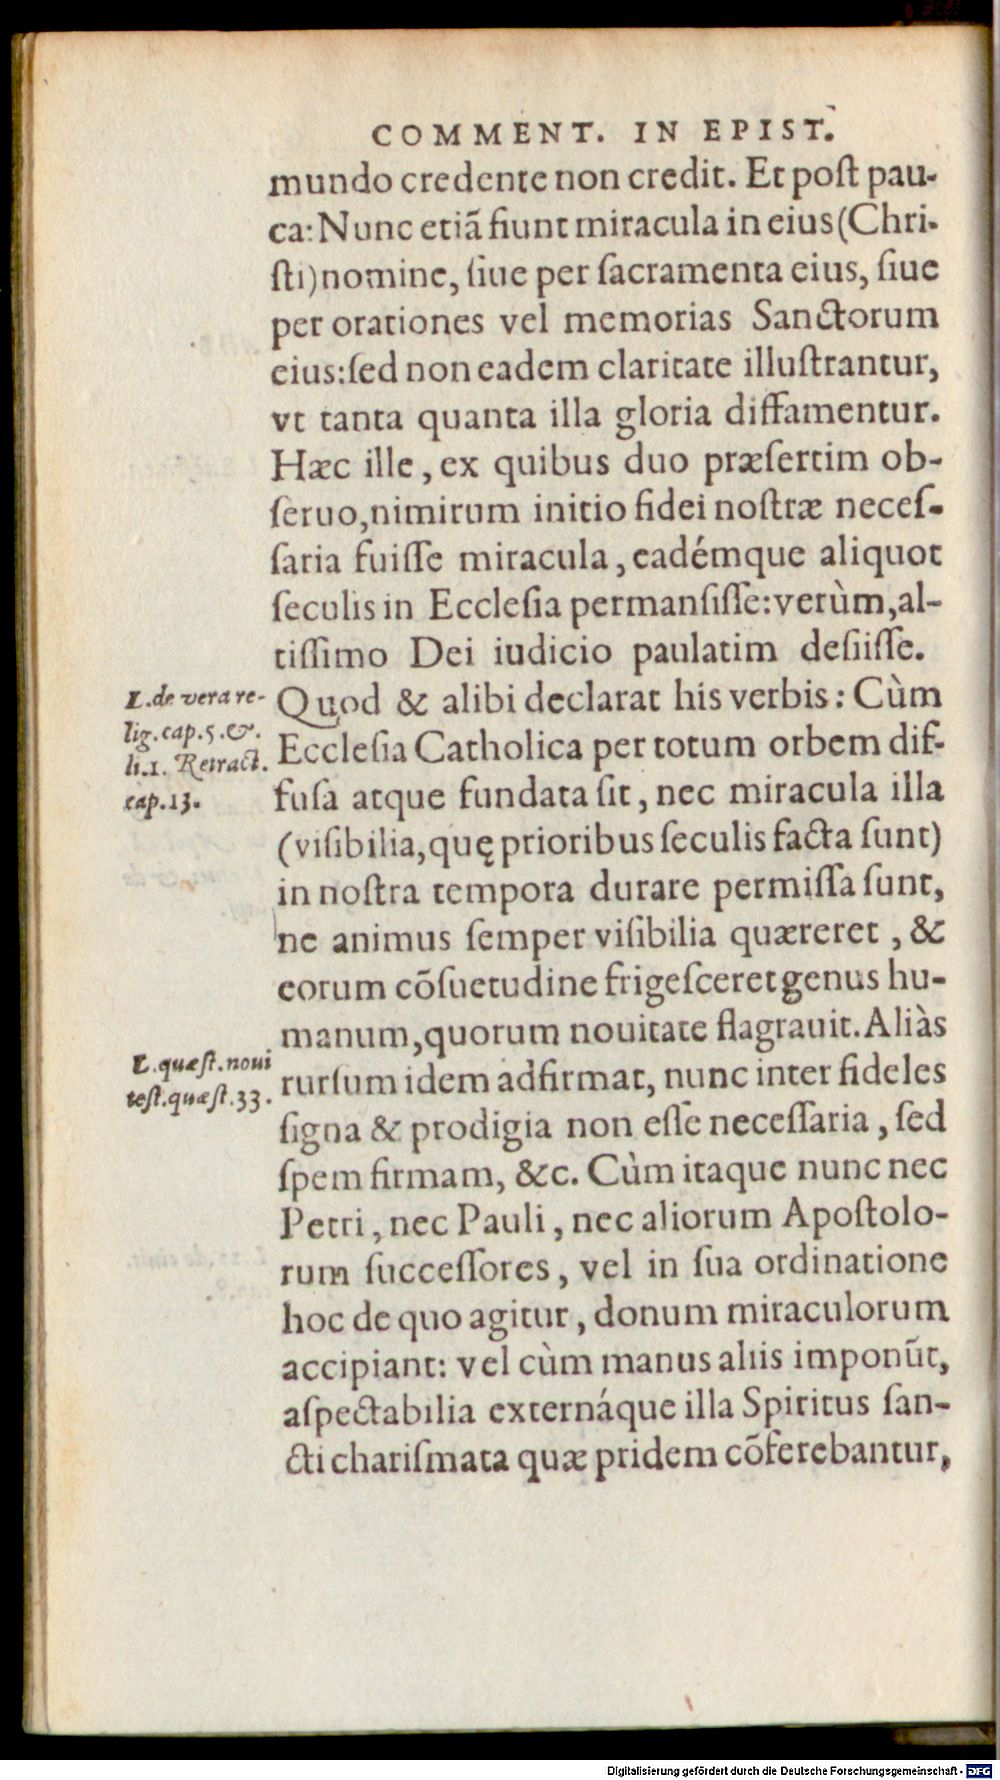 COMMENT. IN EPIST.
mundo credente non credit. Et poſt pau-
ca: Nunc etiã fiunt miracula in eius (Chri-
ſti) nomine, ſiue per ſacramenta eius, ſiue
per orationes vel memorias Sanctorum
eius: ſed non eadem claritate illuſtrantur,
vt tanta quanta illa gloria diffamentur.
Hæc ille, ex quibus duo præſertim ob-
ſeruo, nimirum initio fidei noſtræ neceſ-
ſaria fuiſſe miracula, eadémque aliquot
ſeculis in Eccleſia permanſiſſe: verùm, al-
tiſſimo Dei iudicio paulatim deſiiſſe.
L. de vera re-
lig. cap. 5. &.
li. 1. Retract.
cap. 13.
Quod & alibi declarat his verbis: Cùm
Eccleſia Catholica per totum orbem dif-
fuſa atque fundata ſit, nec miracula illa
(viſibilia, quę prioribus ſeculis facta ſunt)
in noſtra tempora durare permiſſa ſunt,
ne animus ſemper viſibilia quæreret, &
eorum cõſuetudine frigeſceret genus hu-
manum, quorum nouitate flagrauit. Aliàs
L. quæſt. noui
teſt. quæſt. 33.
rurſum idem adfirmat, nunc inter fideles
ſigna & prodigia non eſſe neceſſaria, ſed
ſpem firmam, &c. Cùm itaque nunc nec
Petri, nec Pauli, nec aliorum Apoſtolo-
rum ſucceſſores, vel in ſua ordinatione
hoc de quo agitur, donum miraculorum
accipiant: vel cùm manus aliis imponũt,
aſpectabilia externáque illa Spiritus ſan-
cti chariſmata quæ pridem cõferebantur,
Digitalisierung gefördert durch die Deutsche Forschungsgemeinschaft - DFG